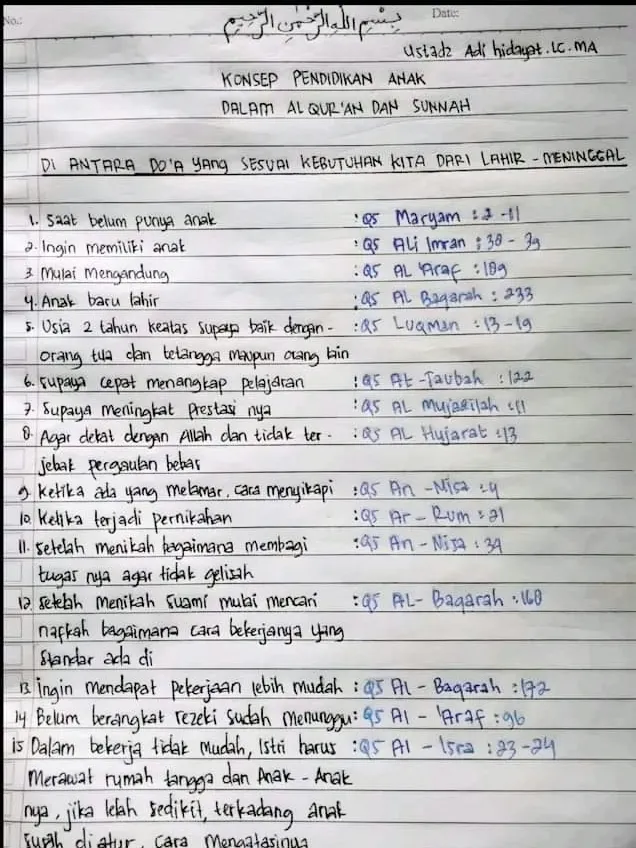 No.:
Date:
بسم الله الرحمن الرحيم
Ustadz Adi hidayat. LC. MA
KONSEP PENDIDIKAN ANAK
DALAM AL QUR'AN DAN SUNNAH
DI ANTARA DO'A YANG SESUAI KEBUTUHAN KITA DARI LAHIR - MENINGGAL
1. Saat belum punya anak : QS Maryam : 2 -11
2. Ingin memiliki anak : QS Ali Imran : 38 - 39
3. Mulai Mengandung : QS AL 'Araf : 189
4. Anak baru lahir : QS AL Baqarah : 233
5. Usia 2 tahun keatas supaya baik dengan - : QS Luqman : 13 -19
orang tua dan tetangga maupun orang lain
6. supaya cepat menangkap pelajaran : QS At -Taubah : 122
7. Supaya meningkat Prestasi nya : QS AL Mujadilah : 11
8. Agar dekat dengan Allah dan tidak ter - : QS AL Hujarat : 13
jebak pergaulan bebas
9. Ketika ada yang melamar, cara menyikapi : QS An -Nisa : 4
10. Ketika terjadi pernikahan : QS Ar - Rum : 21
11. Setelah menikah bagaimana membagi : QS An - Nisa : 34
tugas nya agar tidak gelisah
12. Setelah menikah suami mulai mencari : QS AL- Baqarah : 168
nafkah bagaimana cara bekerjanya yang
Standar ada di
13. Ingin mendapat pekerjaan lebih mudah : QS Al - Baqarah : 172
14 Belum berangkat rezeki sudah menunggu : QS Al - 'Araf : 96
15 Dalam bekerja tidak mudah, Istri harus : QS Al - Isra : 23 -24
Merawat rumah tangga dan Anak - Anak
nya, jika lelah sedikit, terkadang anak
susah diatur, cara Mengatasinya